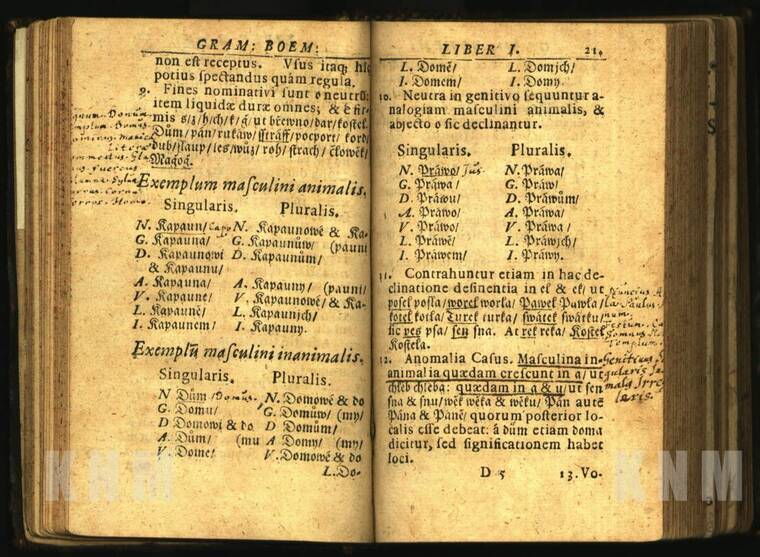 GRAM: BOEM:
non est receptus. Vsus itaq; hîc
potius spectandus quàm regula.
9. Fines nominativi sunt o neutrũ:
item liquidæ duræ omnes; & è fir-
mis s/z/h/ch/k/d/ ut břewno/dar/kostel
Dům/pán/rukáw/sstráff/pocport/kord/
dub/slaup/les/wůz/roh/strach/člowěk/
Magog.
Exemplum masculini animalis.
Singularis. Pluralis.
N. Kapaun/ N. Kapaunowé & Ka-
G. Kapauna/ G. Kapaunůw/ (pauni
D. Kapaunowi D. Kapaunům/
& Kapaunu/
A. Kapauna/ A. Kapauny/ (pauni/
V. Kapaune/ V. Kapaunowé/ & Ka-
L. Kapauně/ L. Kapaunjch/
I. Kapaunem/ I. Kapauny.
Exemplũ masculini inanimalis.
Singularis. Pluralis.
N Dům/ Domus. N. Domowé & do
G. Domu/ G. Domůw/ (my/
D Domowi & do D Domům/
A. Dům/ (mu A Domy/ (my/
V. Dome/ V. Domowé & do
L.Do-
LIBER I. 21.
L. Domě/ L. Domjch/
I. Domem/ I. Domy.
10. Neutra in genitivo sequuntur a-
nalogiam masculini animalis, &
abjecto o sic declinantur.
Singularis. Pluralis.
N. Práwo/ Jus. N. Práwa/
G. Práwa/ G. Práw/
D. Práwu/ D. Práwům/
A. Práwo/ A. Práwa/
V. Práwo/ V. Práwa/
L. Práwě/ L. Práwjch/
I. Práwem/ I. Práwy.
11. Contrahuntur etiam in hac de-
clinatione desinentia in ek & ek/ ut
posel posla/ worek worka/ Pawel Pawla/
kotek kotka/ Turek turka/ swátek swátku/
sic pes psa/ sen sna. At rek reka/ Kostel
Kostela.
12. Anomalia Casus. Masculina in-
animalia quædam crescunt in a/ ut
chléb chleba: quædam in a & u/ ut sen
sna & snu/ wěk wěka & wěku/ Pán autẽ
Pána & Páně/ quorum posterior lo-
calis esse debeat: â dům etiam doma
dicitur, sed significationem habet
loci.
D 5 13. Vo-
Genitivus
KNM
KNM